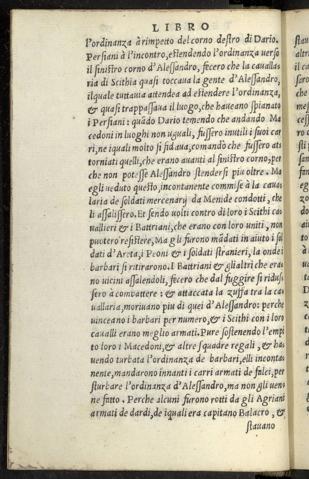 LIBRO
l'ordinanza à rimpetto del corno destro di Dario.
Persiani à l'incontro, estendendo l'ordinanza uerso
il sinistro corno d'Alessandro, fecero che la cauallæ
ria di Scithia quasi toccaua la gente d'Alessandro,
ilquale tuttauia attendea ad estendere l'ordinanza,
& quasi trappassaua il luogo, che haueano spianato
i Persiani: quãdo Dario temendo che andando Ma
cedoni in luoghi non uguali, fussero inutili i suoi car
ri, ne i quali molto si fidaua, comandò che fussero at
torniati quelli, che erano auanti al sinistro corno, per
che non potesse Alessandro stendersi piu oltre. Ma
egli ueduto questo, incontanente commise à la caual
laria de soldati mercenarij da Menide condotti, che
li assalissero. Et sendo uolti contro di loro i Scithi ca
uallieri & i Battriani, che erano con loro uniti, non
puotero resistere, Ma gli furono mãdati in aiuto i sol
dati d'Areta, i Peoni & i soldati stranieri, la onde i
barbari si ritirarono. I Battriani & gli altri che era
no uicini assalendoli, fecero che dal fuggire si ridus
sero à combattere: & attaccata la zuffa tra la ca
uallaria, moriuano piu di quei d'Alessandro: perche
uinceano i barbari per numero, & i Scithi con i loro
caualli erano meglio armati. Pure sostenendo l'empi
to loro i Macedoni, & altre squadre regali, & ha
uendo turbata l'ordinanza de barbari, elli inconta
nente, mandarono innanti i carri armati de falci, per
sturbare l'ordinanza d'Alessandro, ma non gli uen
ne fatto. Perche alcuni furono rotti da gli Agriani
armati de dardi, de iquali era capitano Balacro, &
stauano